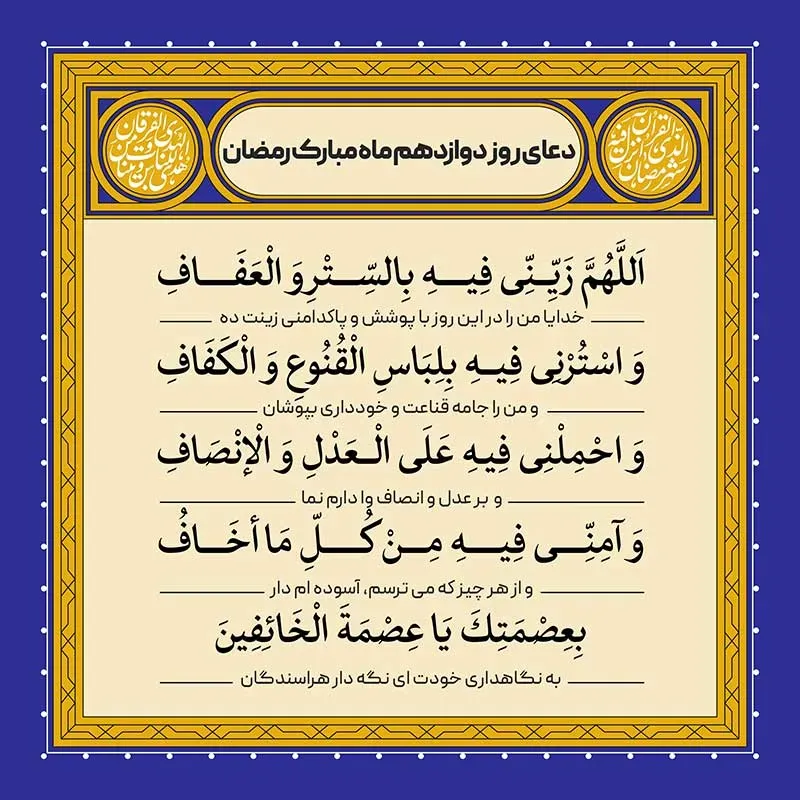 شهر رمضان الذی انزل فیه القرآن
دعای روز دوازدهم ماه مبارک رمضان
هدی للناس و بینات من الهدی و الفرقان
اَللَّهُمَّ زَیِّنِّی فِیهِ بِالسِّتْرِ وَ الْعَفَافِ
خدایا من را در این روز با پوشش و پاکدامنی زینت ده
وَ اسْتُرْنِی فِیهِ بِلِبَاسِ الْقُنُوعِ وَ الْکَفَافِ
و من را جامه قناعت و خودداری بپوشان
وَ احْمِلْنِی فِیهِ عَلَی الْعَدْلِ وَ الْإِنْصَافِ
و بر عدل و انصاف وا دارم نما
وَ آمِنِّی فِیهِ مِنْ کُلِّ مَا أخَافُ
و از هر چیز که می ترسم، آسوده ام دار
بِعِصْمَتِكَ یَا عِصْمَةَ الْخَائِفِینَ
به نگاهداری خودت ای نگه دار هراسندگان